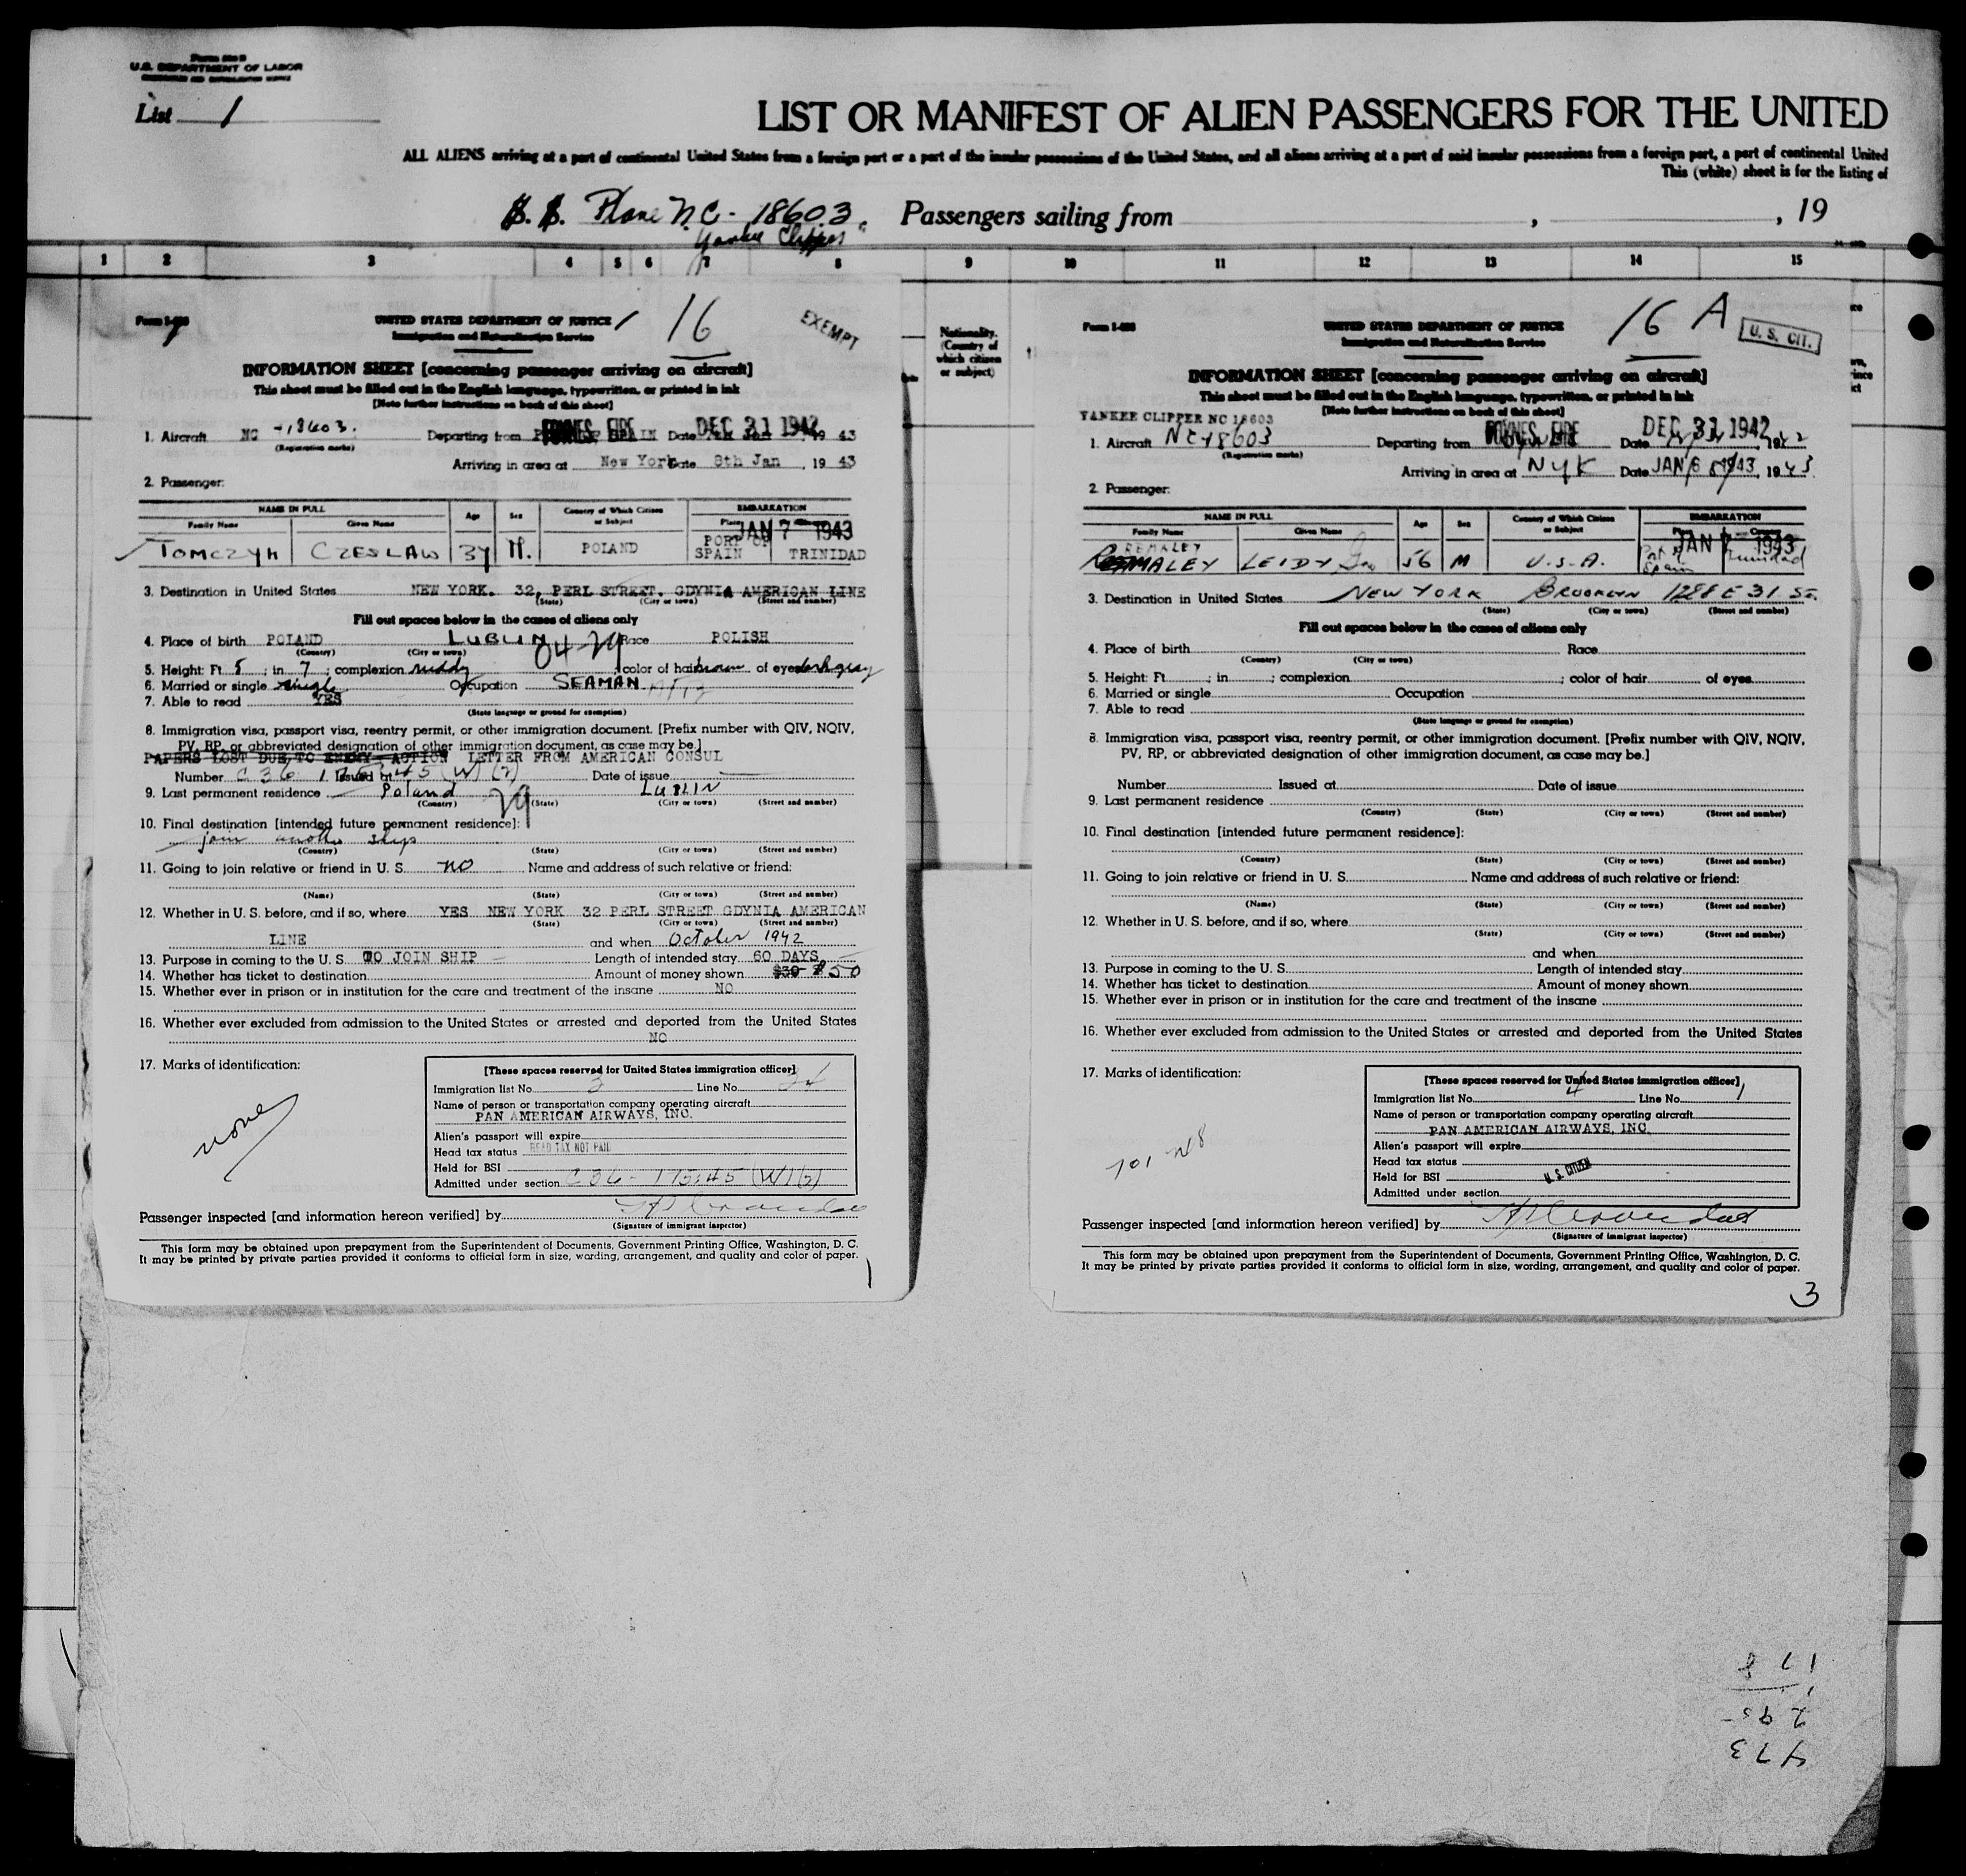 U.S. DEPARTMENT OF LABOR
List 1
LIST OR MANIFEST OF ALIEN PASSENGERS FOR THE UNITED
ALL ALIENS arriving at a port of continental United States from a foreign port or a port of the insular possessions of the United States, and all aliens arriving at a port of said insular possessions from a foreign port, a port of continental United
This (white) sheet is for the listing of
S. S. Plane N.C- 18603, Passengers sailing from , , 19
Yankee Clipper
1 2 3 4 5 6 7 8 9 10 11 12 13 14 15
Nationality.
(Country of
which citizen
or subject)
UNITED STATES DEPARTMENT OF JUSTICE 16 EXEMPT
Immigration and Naturalization Service
INFORMATION SHEET [concerning passenger arriving on aircraft]
This sheet must be filled out in the English language, typewritten, or printed in ink
[Note further instructions on back of this sheet]
1. Aircraft NC -18603. Departing from FOYNES, EIRE Date DEC 31 1942, 19 43
(Registration marks)
Arriving in area at New York Date 8th Jan, 19 43
2. Passenger:
NAME IN FULL Age Sex Country of Which Citizen or Subject EMBARKATION
Family Name Given Name JAN 7 1943
TOMCZYK CZESLAW 34 M. POLAND PORT OF SPAIN TRINIDAD
3. Destination in United States NEW YORK. 32, PERL STREET. GDYNIA AMERICAN LINE
(State) (City or town) (Street and number)
Fill out spaces below in the cases of aliens only
4. Place of birth POLAND LUBLIN Race POLISH
(Country) (City or town)
5. Height: Ft. 5 ; in 7 ; complexion ruddy ; color of hair brown of eyes dark gray
6. Married or single single Occupation SEAMAN
7. Able to read YES
(State language or ground for exemption)
8. Immigration visa, passport visa, reentry permit, or other immigration document. [Prefix number with QIV, NQIV,
PV, RP, or abbreviated designation of other immigration document, as case may be.]
PAPERS LOST DUE TO ENEMY ACTION LETTER FROM AMERICAN CONSUL
Number Issued at Date of issue
9. Last permanent residence Poland LUBLIN
(Country) (State) (City or town) (Street and number)
10. Final destination [intended future permanent residence]:
join another ship
(Country) (State) (City or town) (Street and number)
11. Going to join relative or friend in U. S. no Name and address of such relative or friend:
(Name) (State) (City or town) (Street and number)
12. Whether in U. S. before, and if so, where YES NEW YORK 32 PERL STREET GDYNIA AMERICAN
(State) (City or town) (Street and number)
LINE and when October 1942
13. Purpose in coming to the U. S. TO JOIN SHIP Length of intended stay 60 DAYS
14. Whether has ticket to destination Amount of money shown $30 $50
15. Whether ever in prison or in institution for the care and treatment of the insane NO
16. Whether ever excluded from admission to the United States or arrested and deported from the United States
NO
17. Marks of identification:
none
[These spaces reserved for United States immigration officer]
Immigration list No. 3 Line No.
Name of person or transportation company operating aircraft
PAN AMERICAN AIRWAYS, INC.
Alien's passport will expire
Head tax status HEAD TAX NOT PAID
Held for BSI
Admitted under section
Passenger inspected [and information hereon verified] by
(Signature of immigrant inspector)
This form may be obtained upon prepayment from the Superintendent of Documents, Government Printing Office, Washington, D. C.
It may be printed by private parties provided it conforms to official form in size, wording, arrangement, and quality and color of paper.
1
UNITED STATES DEPARTMENT OF JUSTICE 16 A U. S. CIT.
Immigration and Naturalization Service
INFORMATION SHEET [concerning passenger arriving on aircraft]
This sheet must be filled out in the English language, typewritten, or printed in ink
[Note further instructions on back of this sheet]
YANKEE CLIPPER NC 18603
1. Aircraft NC18603 Departing from FOYNES, EIRE Date DEC 31 1942, 1942
(Registration marks)
Arriving in area at NYK Date JAN 8 1943, 1943
2. Passenger:
NAME IN FULL Age Sex Country of Which Citizen or Subject EMBARKATION
Family Name Given Name JAN 1943
REMALEY
REMALEY LEIDY 56 M U.S.A. Port of Spain Trinidad
3. Destination in United States NEW YORK BROOKLYN 1288 E 31 ST.
(State) (City or town) (Street and number)
Fill out spaces below in the cases of aliens only
4. Place of birth Race
(Country) (City or town)
5. Height: Ft. ; in ; complexion ; color of hair of eyes
6. Married or single Occupation
7. Able to read
(State language or ground for exemption)
8. Immigration visa, passport visa, reentry permit, or other immigration document. [Prefix number with QIV, NQIV,
PV, RP, or abbreviated designation of other immigration document, as case may be.]
Number Issued at Date of issue
9. Last permanent residence
(Country) (State) (City or town) (Street and number)
10. Final destination [intended future permanent residence]:
(Country) (State) (City or town) (Street and number)
11. Going to join relative or friend in U. S. Name and address of such relative or friend:
(Name) (State) (City or town) (Street and number)
12. Whether in U. S. before, and if so, where
(State) (City or town) (Street and number)
and when
13. Purpose in coming to the U. S. Length of intended stay
14. Whether has ticket to destination Amount of money shown
15. Whether ever in prison or in institution for the care and treatment of the insane
16. Whether ever excluded from admission to the United States or arrested and deported from the United States
17. Marks of identification:
[These spaces reserved for United States immigration officer]
Immigration list No. 4 Line No. 1
Name of person or transportation company operating aircraft
PAN AMERICAN AIRWAYS, INC.
Alien's passport will expire
Head tax status
Held for BSI U.S. CITIZEN
Admitted under section
Passenger inspected [and information hereon verified] by
(Signature of immigrant inspector)
This form may be obtained upon prepayment from the Superintendent of Documents, Government Printing Office, Washington, D. C.
It may be printed by private parties provided it conforms to official form in size, wording, arrangement, and quality and color of paper.
3
473
295
178